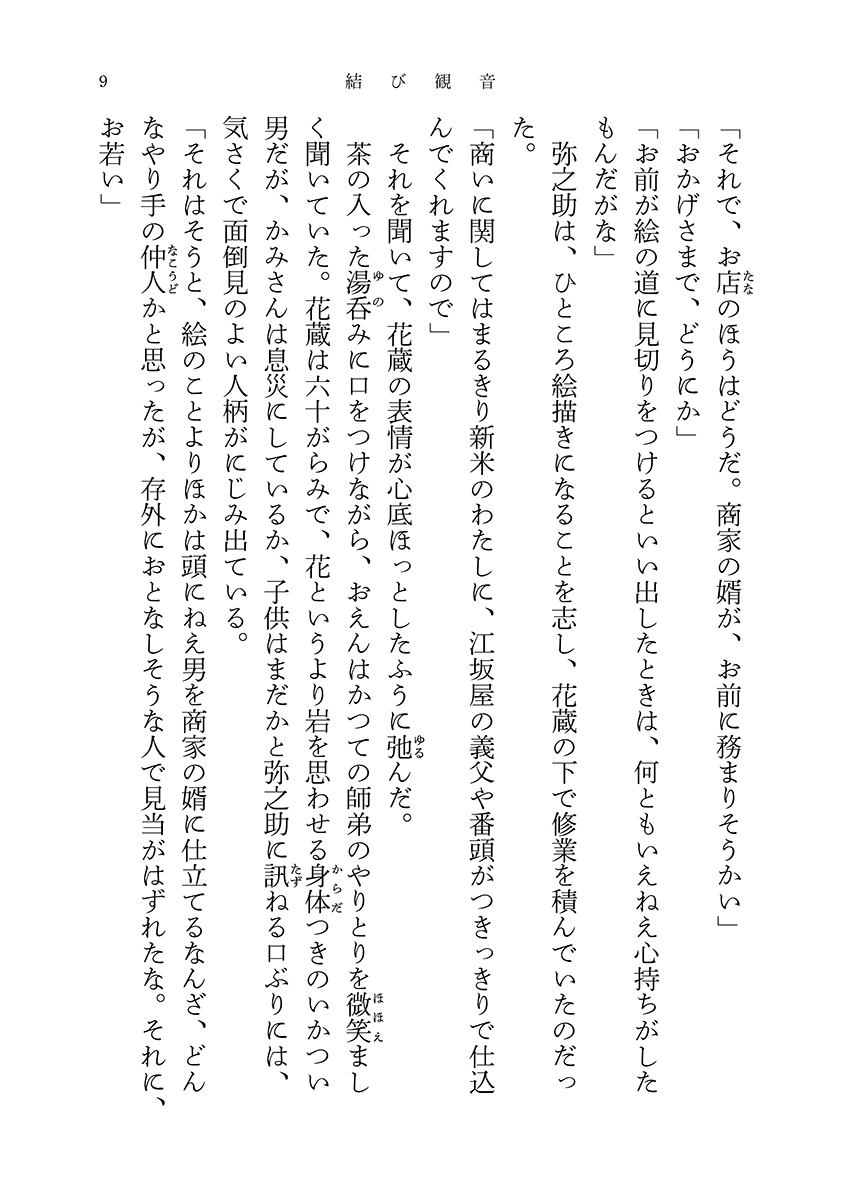 9
結び観音
「それで、お店のほうはどうだ。商家の婿が、お前に務まりそうかい」
「おかげさまで、どうにか」
「お前が絵の道に見切りをつけるといい出したときは、何ともいえねえ心持ちがした
もんだがな」
弥之助は、ひところ絵描きになることを志し、花蔵の下で修業を積んでいたのだっ
た。
「商いに関してはまるきり新米のわたしに、江坂屋の義父や番頭がつきっきりで仕込
んでくれますので」
それを聞いて、花蔵の表情が心底ほっとしたふうに弛んだ。
茶の入った湯呑みに口をつけながら、おえんはかつての師弟のやりとりを微笑まし
く聞いていた。花蔵は六十がらみで、花というより岩を思わせる身体つきのいかつい
男だが、かみさんは息災にしているか、子供はまだかと弥之助に訊ねる口ぶりには、
気さくで面倒見のよい人柄がにじみ出ている。
「それはそうと、絵のことよりほかは頭にねえ男を商家の婿に仕立てるなんざ、どん
なやり手の仲人かと思ったが、存外におとなしそうな人で見当がはずれたな。それに、
お若い」
たな
ゆる
ゆの
ほほえ
からだ
たず
なこうど